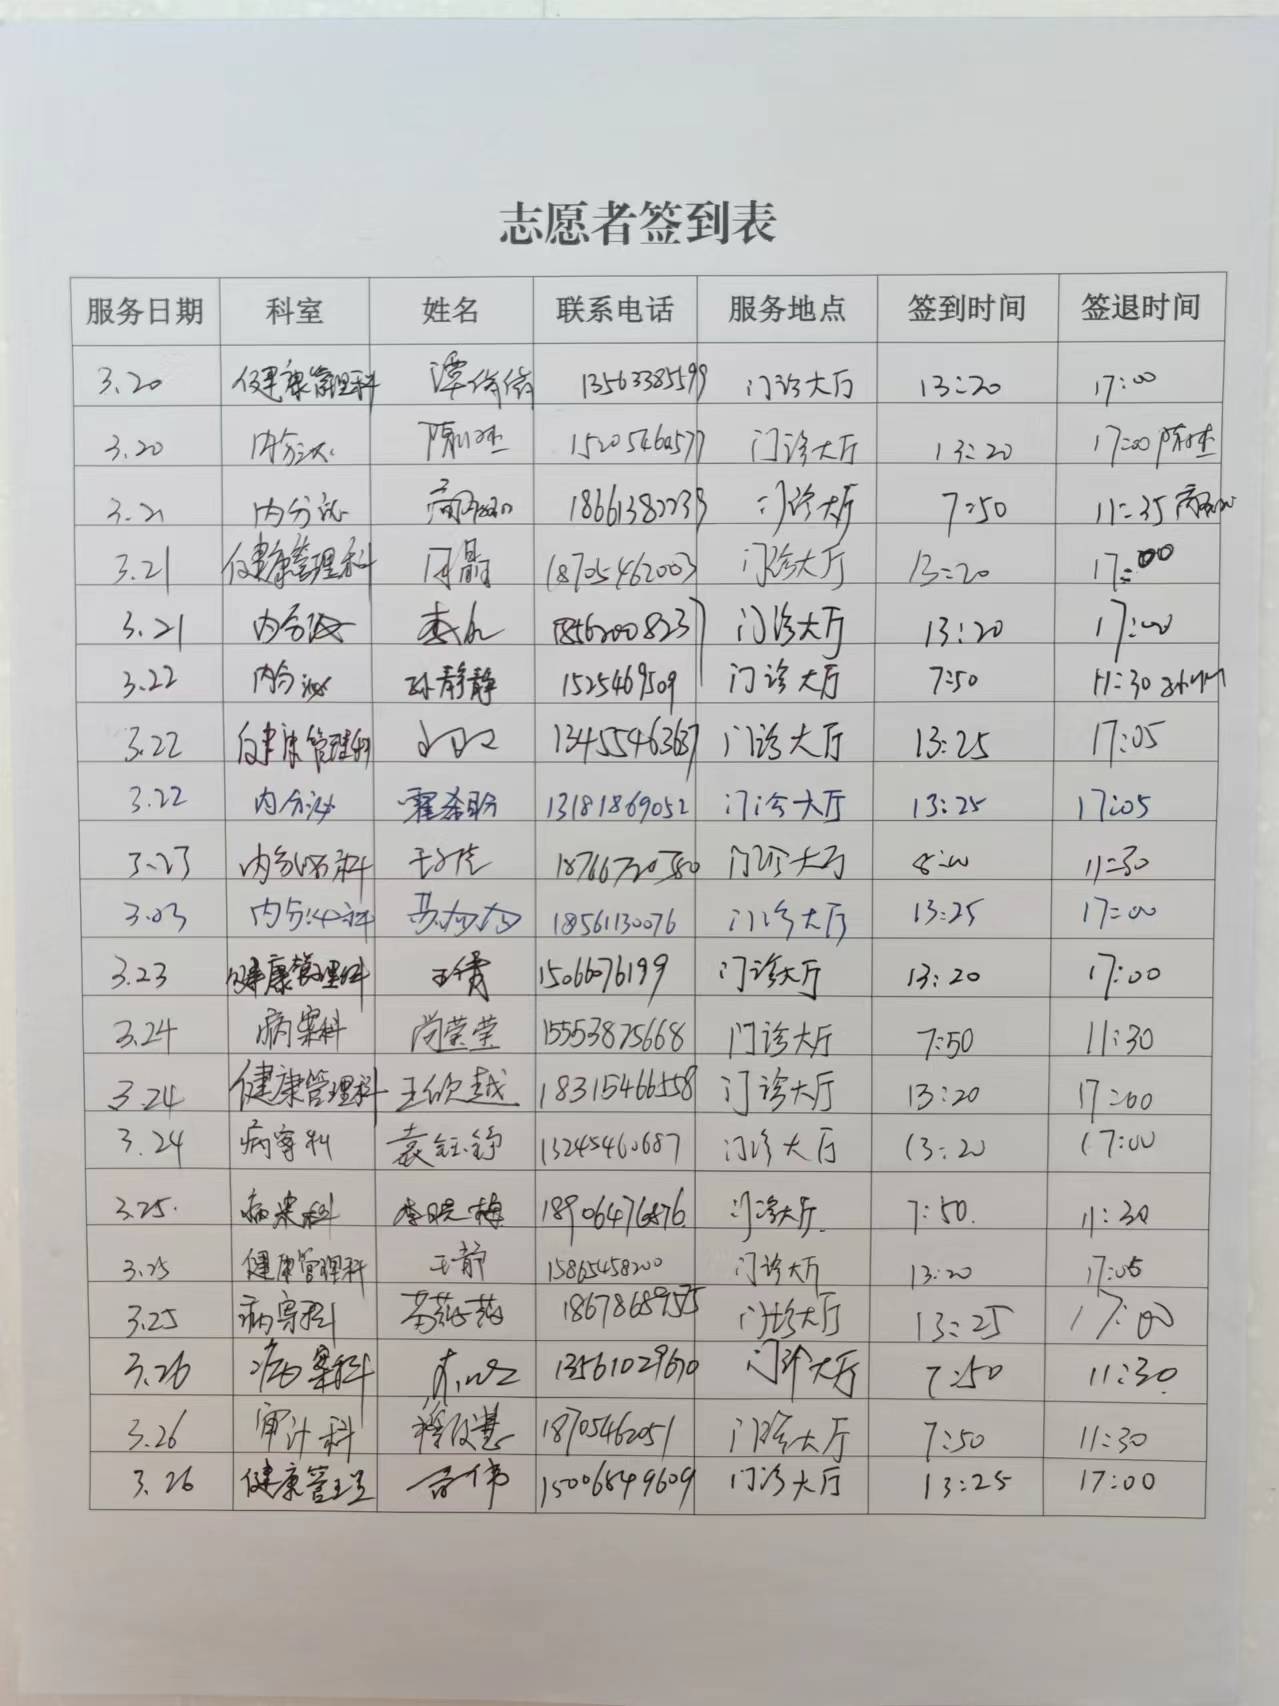 志愿者签到表
服务日期 科室 姓名 联系电话 服务地点 签到时间 签退时间
3.20 健康管理科 谭倩倩 13563385599 门诊大厅 13:20 17:00
3.20 内分泌 15205460577 门诊大厅 13:20 17:00
3.21 内分泌 18661382239 门诊大厅 7:50 11:35
3.21 健康管理科 18705462003 门诊大厅 13:20 17:00
3.21 内分泌 18562008237 门诊大厅 13:20 17:00
3.22 内分泌 孙静静 1525469509 门诊大厅 7:50 11:30
3.22 健康管理科 13455463687 门诊大厅 13:25 17:05
3.22 内分泌 霍希盼 13181869052 门诊大厅 13:25 17:05
3.23 内分泌科 18766720580 门诊大厅 8:00 11:30
3.03 内分泌科 18561130076 门诊大厅 13:25 17:00
3.23 健康管理科 王倩 1506076199 门诊大厅 13:20 17:00
3.24 病案科 尚莹莹 15553875668 门诊大厅 7:50 11:30
3.24 健康管理科 王欣越 18315466558 门诊大厅 13:20 17:00
3.24 病案科 袁钰铮 13245460687 门诊大厅 13:20 17:00
3.25. 病案科 李晓梅 18906476876 门诊大厅 7:50 11:30
3.25 健康管理科 王静 15865458200 门诊大厅 13:20 17:05
3.25 病案科 门诊大厅 13:25 17:00
3.26 病案科 13561029670 门诊大厅 7:50 11:30
3.26 审计科 18705462051 门诊大厅 7:50 11:30
3.26 健康管理 15006849609 门诊大厅 13:25 17:00